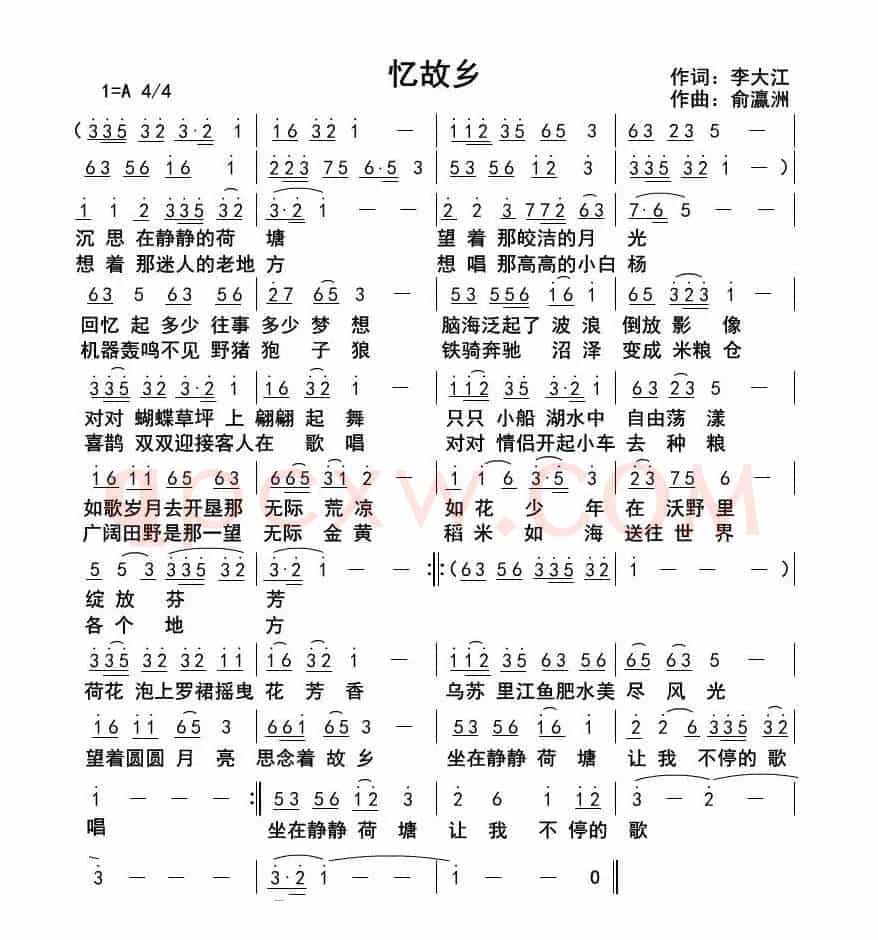 忆故乡
1=A 4/4
作词：李大江
作曲：俞瀛洲
（3 3 5 3 2 3·2 1 | 1 6 3 2 1 — | 1 1 2 3 5 6 5 3 | 6 3 2 3 5 — |
6 3 5 6 1 6 1 | 2 2 3 7 5 6·5 3 | 5 3 5 6 1 2 3 | 3 3 5 3 2 1 —）|
1 1 2 3 3 5 3 2 | 3·2 1 — — | 2 2 3 7 7 2 6 3 | 7·6 5 — — |
沉 思 在静静的荷 塘 望 着 那皎洁的月 光
想 着 那迷人的老地 方 想 唱 那高高的小白 杨
6 3 5 6 3 5 6 | 2 7 6 5 3 — | 5 3 5 5 6 1 6 1 | 6 5 3 2 3 1 — |
回忆 起 多少 往事 多少 梦 想 脑海泛起了 波 浪 倒放 影 像
机器轰鸣不见 野猪 狍 子 狼 铁骑奔驰 沼 泽 变成 米粮 仓
3 3 5 3 2 3·2 1 | 1 6 3 2 1 — | 1 1 2 3 5 6 5 3 | 6 3 2 3 5 — |
对对 蝴蝶草坪 上 翩翩 起 舞 只只 小船 湖水中 自由荡 漾
喜鹊 双双迎接客人在 歌 唱 对对 情侣开起小车 去 种 粮
1 6 1 1 6 5 6 3 | 6 6 5 3 1 2 — | 1 1 6 3·5 3 | 2 3 7 5 6 — |
如歌岁月去开垦那 无际 荒 凉 如 花 少 年 在 沃野 里
广阔田野是那一望 无际 金 黄 稻 米 如 海 送往 世 界
5 5 3 3 3 5 3 2 | 3·2 1 — — :||:（6 3 5 6 3 3 5 3 2 | 1 — — —）|
绽 放 芬 芳
各 个 地 方
3 3 5 3 2 3 2 1 1 | 1 6 3 2 1 — | 1 1 2 3 5 6 5 3 3 | 6 5 6 3 5 — |
荷花 泡上罗裙摇曳 花 芳 香 乌苏 里江鱼肥水美 尽 风 光
1 6 1 1 6 5 3 | 6 6 1 6 5 3 — | 5 3 5 6 1 6 1 | 2 2 6 3 3 5 3 2 |
望着圆圆 月 亮 思念着 故 乡 坐在静静 荷 塘 让 我 不停的 歌
1 — — — :|| 5 3 5 6 1 2 3 | 2 6 1 1 2 | 3 — 2 — |
唱 坐在静静 荷 塘 让 我 不 停的 歌
3 — — — | 3·2 1 — — | 1 — — 0 ||
qpcxw.COM